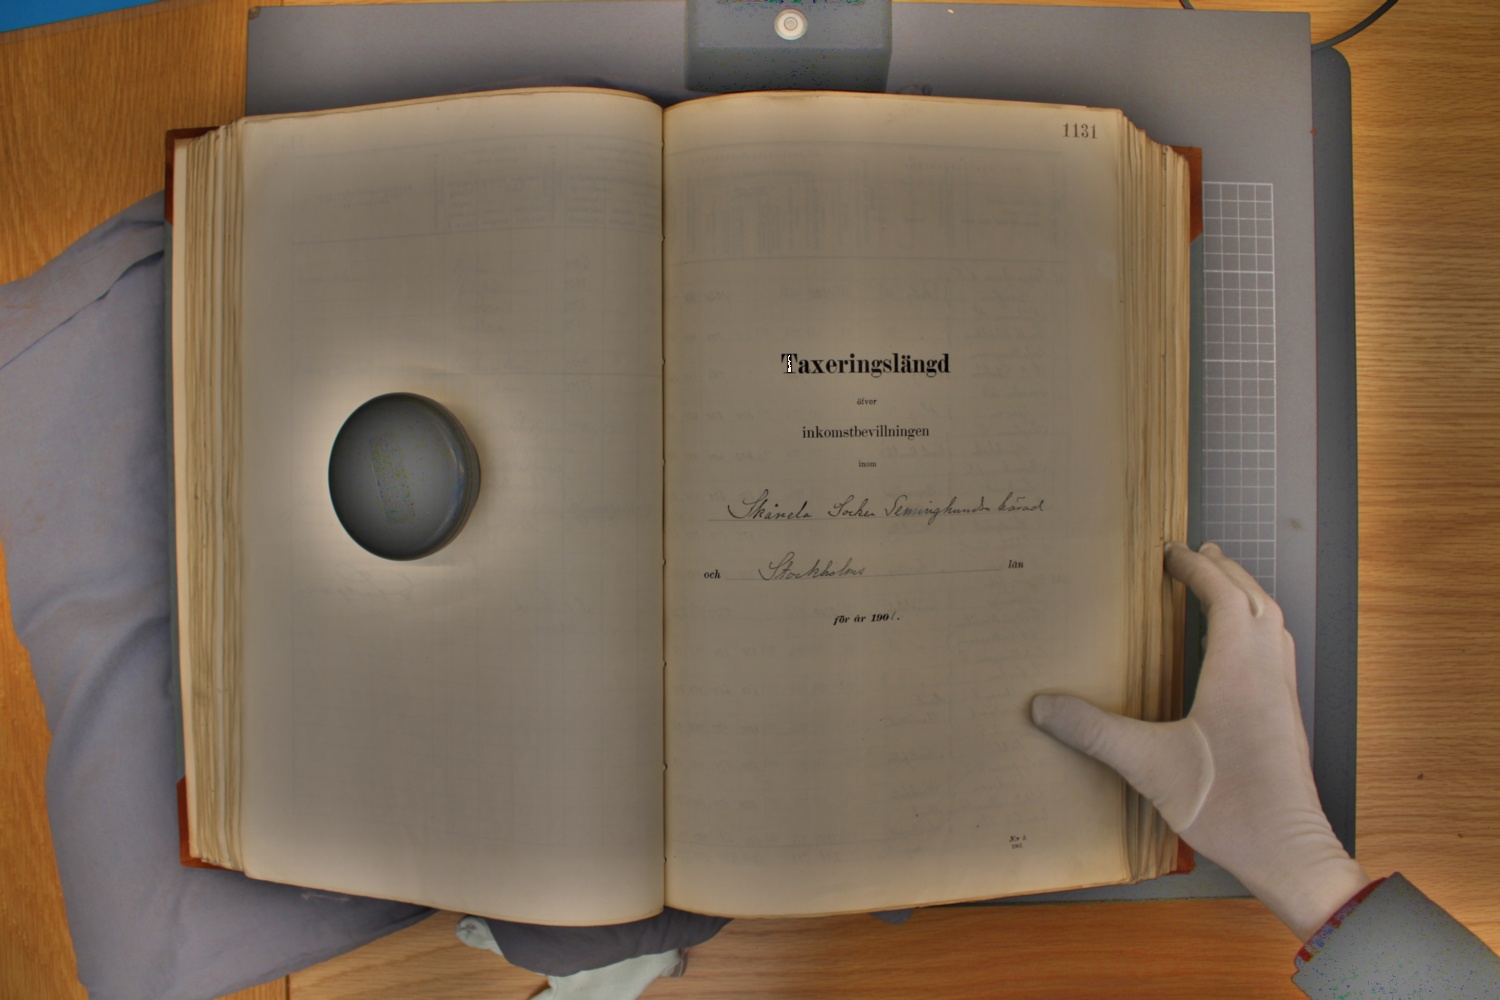 1131
Taxeringslängd
öfver
inkomstbevillningen
inom
Skånela Socken Seminghundra härad
och Stockholms län
för år 1901.
N:r 3.
1901.